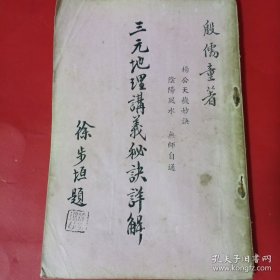 殷儒童著
楊公天機妙訣
陰陽風水 無師自通
三元地理講義秘訣詳解
徐步垣題
孔夫子旧书网